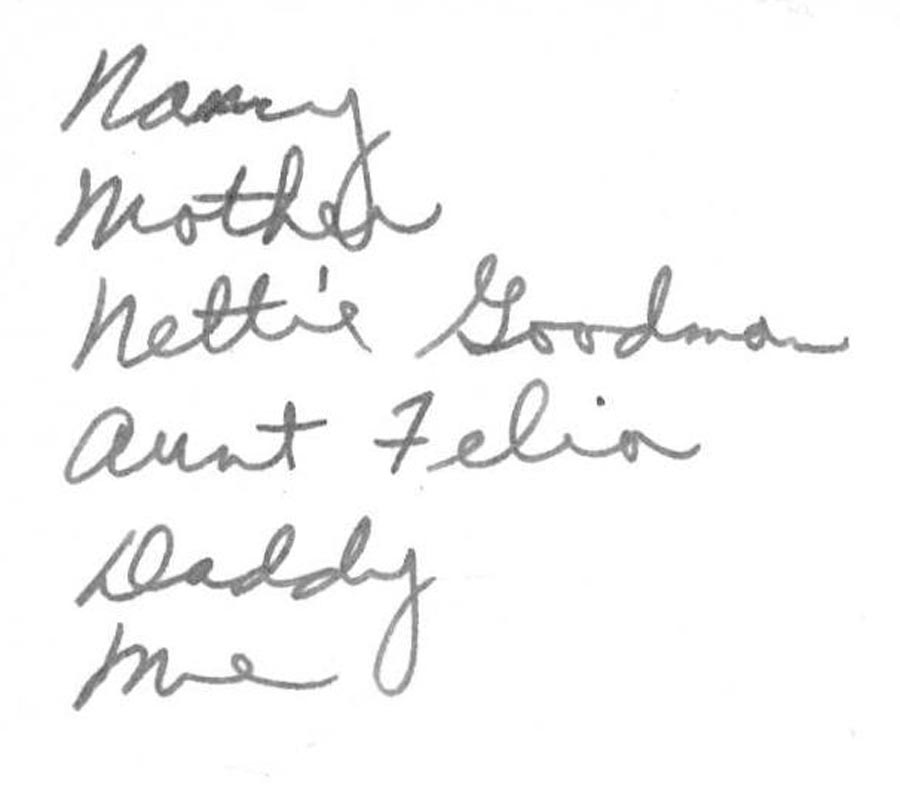 Nancy
Mother
Nettie Goodman
Aunt Felia
Daddy
Me